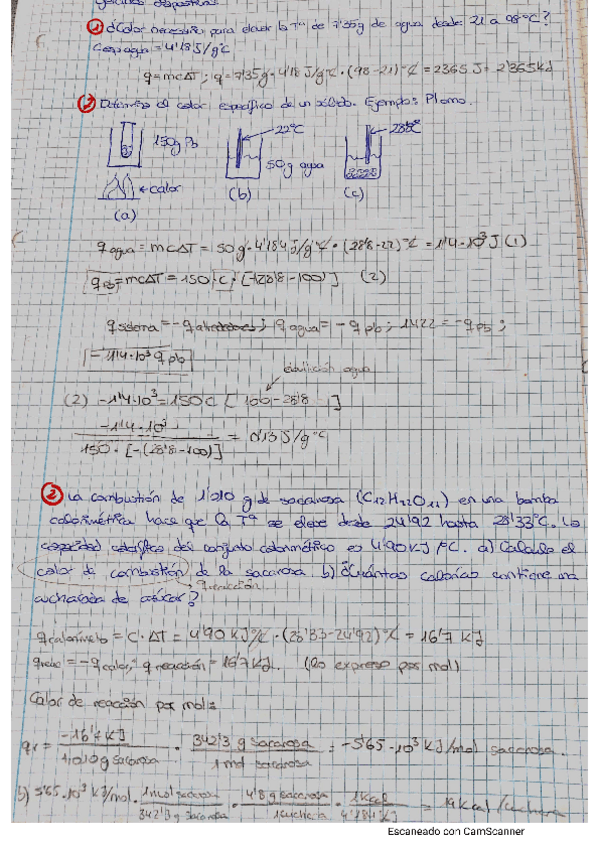 ① ¿Calor necesario para elevar la Tª de 7'35g de agua desde 21 a 98°C?
Cesp agua = 4'18 J/g°C
q=mcΔT; q=7'35g·4'18 J/g°C·(98-21)°C = 2365 J = 2'365KJ
② Determina el calor específico de un sólido. Ejemplo: Plomo.
150g Pb
22°C
28'8°C
50g agua
calor
(a)
(b)
(c)
q agua = mcΔT = 50g·4'184 J/g°C·(28'8-22)°C = 1'4·10³ J (1)
qPb=mcΔT = 150·C·[28'8-100] (2)
q sistema = -q alrededores; q agua = -q pb; 1422 = -q pb;
-1'4·10³ q pb
ebullición agua
(2) -1'4·10³=150C [100-28'8]
-1'4·10³
150·[-(28'8-100)] = 0'13 J/g°C
② La combustión de 1'010 g de sacarosa (C12H22O11) en una bomba
calorimétrica hace que la Tª se eleve desde 24'92 hasta 28'33°C. La
capacidad calorífica del conjunto calorimétrico es 4'90 KJ/°C. a) Calcula el
calor de combustión de la sacarosa b) ¿Cuántas calorías contiene una
q reacción
cucharada de azúcar?
q calorímetro = C·ΔT = 4'90 KJ/°C·(28'33-24'92)°C = 16'7 KJ
q reac = -q calor; q reacción = 16'7 KJ. (Lo expreso por mol)
Calor de reacción por mol:
qr = -16'7 KJ / 1'010 g sacarosa · 342'3 g sacarosa / 1 mol sacarosa = -5'65·10³ KJ/mol sacarosa.
b) 5'65·10³ KJ/mol · 1 mol sacarosa / 342'3 g sacarosa · 4'8 g sacarosa / 1 cuchara · 1 Kcal / 4'184 KJ = 19 Kcal/cuchara
Escaneado con CamScanner